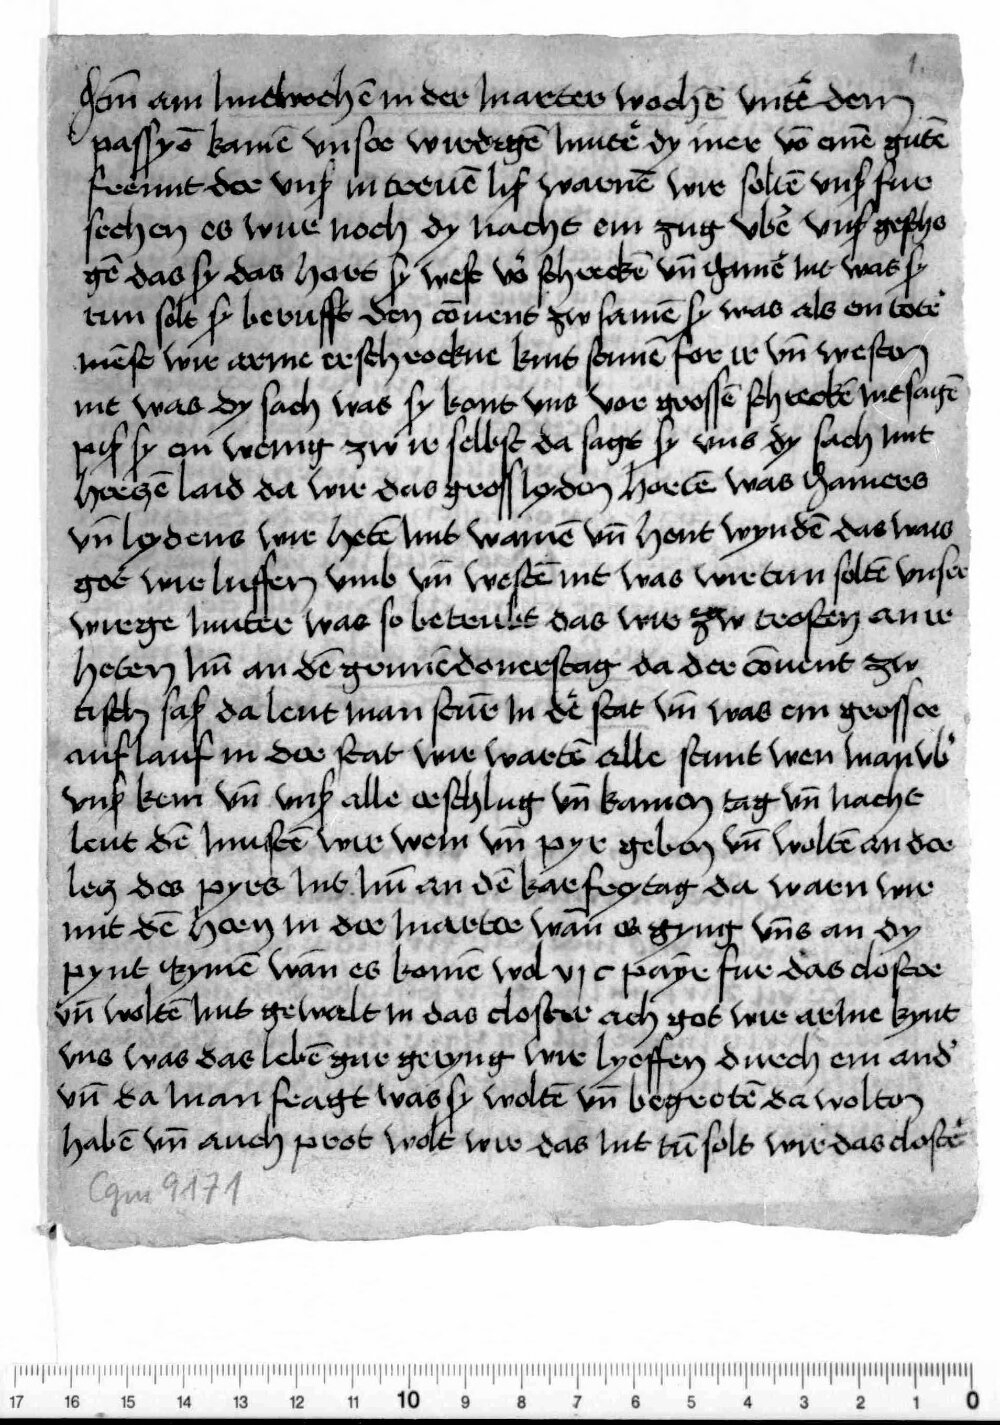 1
Jtm am mitwochē in der marter wochē vntē dem
passyō kamē vnser wirdigē mutē dy mer vō einē gutē
freunt der vnß in treuē liß warnē wir soltē vnß fur
sechen es wur noch dy nacht ein zug vbē vnß geschs
gē das sy das hort sy west vō schreckē vn̄ Jamē nit was sy
tun solt sy berufft den cōuent zw samē sy was als ein totē
mēst wir arme erschrockne kint scinnē for ir vn̄ westen
nit was dy sach was sy kont vns vor grossē schreckē nit sagē
piß sy ein wenig zw ir selbst da sagt sy vns dy sach mit
herczē laid da wir das gross lyden hortē was Jamers
vn̄ lydens wir hetē mit wainē vn̄ hent wyndē das wais
got wir luffen vmb vn̄ westē nit was wir tun soltē vnser
wirge muter was so betrubt das wir zw trosten an ir
heten Jtm an dē grunēdonerstag da der cōuent zw
tisch saß da leut man sturē in dē stat vn̄ was ein grosser
auflauf in der stat wir wartē alle stunt wen man vb'
vnß kem vn̄ vnß alle erschlug vn̄ kamen tag vn̄ nacht
leut dē mustē wir wein vn̄ pyr geben vn̄ woltē an der
ley des pyrs nit Jtm an dē karfreytag da warn wir
mit dē hern in der marter wan̄ es gyng vn̄s an dy
pynt rymē wan̄ es komē wol vj c payr̄e fur das closter
vn̄ woltē mit gewalt in das closter ach got wir arme kynt
vns was das lebē gar geryng wir lyeffen durch ein and'
vn̄ da man fragt was sy woltē vn̄ begertē da wolten
habē vn̄ auch prot wolt wir das nit tu̅ solt wir das clostē
Cgm 9171
17 16 15 14 13 12 11 10 9 8 7 6 5 4 3 2 1 0